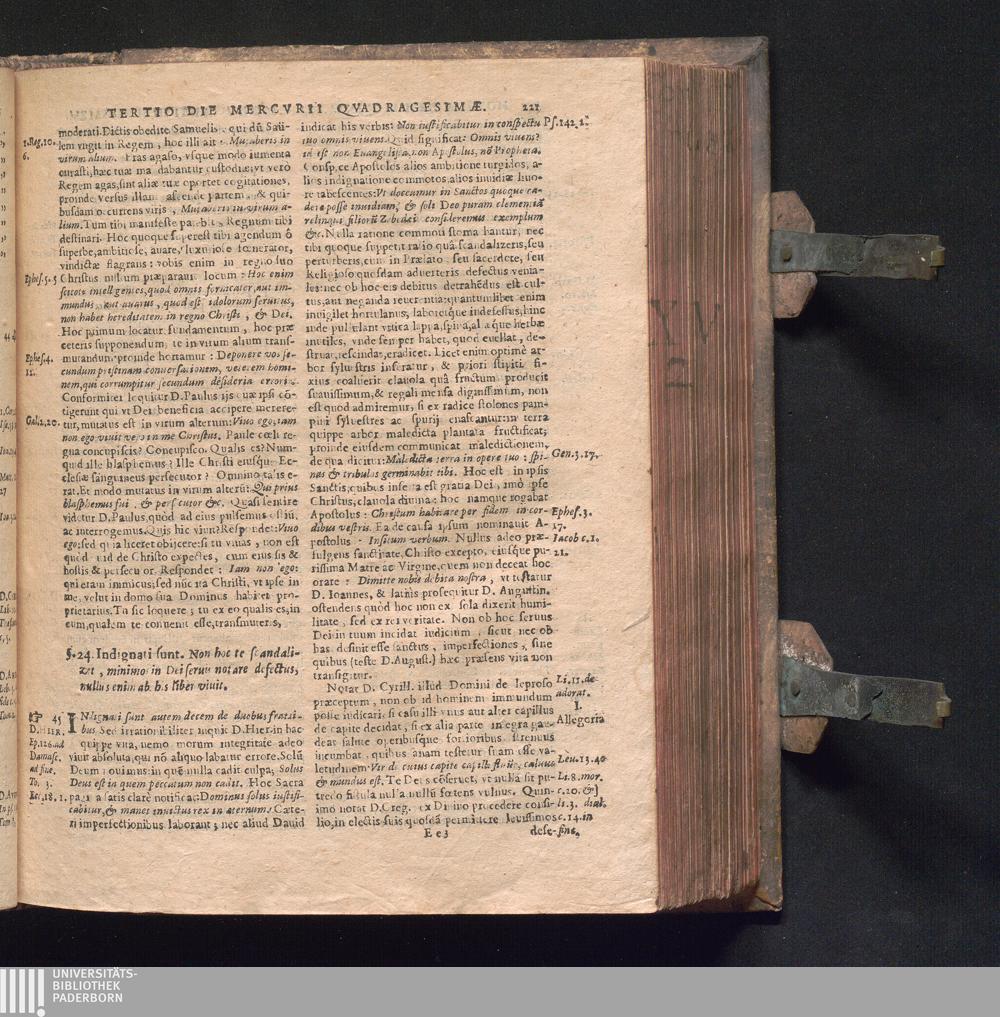 TERTIO DIE MERCVRII QVADRAGESIMÆ. 221
moderati. Dictis obedite Samuelis, qui dũ Saũ-
lem vngit in Regem, hoc illi ait: Mutaberis in
virum alium. Fras agaso, vsque modo iumenta
curasti, hæc tuæ mandabantur custodiæ; vt verò
Regem agas, sint aliæ tuæ oportet cogitationes,
proinde versus illam ascende partem, & qui-
busdam occurrens viris, Mutaberis in virum a-
lium. Tum tibi manifeste patebit, Regnum tibi
destinari. Hoc quoque superest tibi agendum ô
superbe, ambitiose, auare, luxuriose fœnerator,
vindictæ flagrans: vobis enim in regno suo
Christus nullum præparauit locum: Hoc enim
scitote intelligentes, quod omnis fornicator, aut im-
mundus, aut auarus, quod est idolorum seruitus,
non habet hereditatem in regno Christi, & Dei.
Hoc primum locatur fundamentum, hoc præ
ceteris supponendum, te in virum alium trans-
mutandum; proinde hortamur: Deponere vos se-
cundum pristinam conuersationem, veterem homi-
nem, qui corrumpitur secundum desideria erroris.
Conformiter loquitur D. Paulus ijs quæ ipsi cõ-
tigerunt qui vt Dei beneficia accipere merere-
tur, mutatus est in virum alterum: Viuo ego, iam
non ego viuit vero in me Christus. Paule cœli re-
gna concupiscis? Concupisco. Qualis es? Num-
quid ille blasphemus? Ille Christi eiusque Ec-
clesiæ sanguineus persecutor? Omnino talis e-
rat. Et modo mutatus in virum alterũ: Qui prius
blasphemus fui, & persecutor &c. Quasi sentire
videtur D. Paulus, quòd ad eius pulsemus ostiũ,
ac interrogemus. Quis hic viuit? Respondet: Viuo
ego: sed quia liceret obijcere: si tu viuas, non est
quòd quid de Christo expectes, cum eius sis &
hostis & persecutor. Respondet: Iam non ego:
qui etam inimicus; sed nũc ita Christi, vt ipse in
me, velut in domo sua Dominus habitet pro-
prietarius. Tu sic loquere; tu ex eo qualis es, in
eum, qualem te conuenit esse, transmuteris,
§. 24. Indignati sunt. Non hoc te scandali-
zet, minimo in Dei seruu notare defectus,
nullus enim ab his liber viuit.
45 INdignati sunt autem decem de duobus fratri-
bus. Sed irrationibiliter inquit D. Hier. in hac
quippe vita, nemo morum integritate adeo
viuit absoluta, qui nō aliquo labatur errore. Solũ
Deum nouimus: in quẽ nulla cadit culpa; Solus
Deus est in quem peccatum non cadit. Hoc Sacra
pagina satis clarè notificat: Dominus solus iustifi-
cabitur, & manet inuictus rex in æternum. Cæte-
ri imperfectionibus laborant; nec aliud Dauid
1. Reg. 10.
6.
Ephes. 5. 5
Ephes. 4.
Gal. 2, 20.
D. HIER.
Ep. 126. ad
Damasc.
ad fine.
To. 3.
Ecc, 18. 1.
indicat his verbis: Non iustificabitur in conspectu
tuo omnis viuens. Quid significat: Omnis viuens?
id est non Euangelista, non Apostolus, nō Propheta.
Conspice Apostolos alios ambitione turgidos, a-
lios indignatione commotos, alios inuidiæ liuo-
re tabescentes: Vt doceamur in Sanctos quoque ca-
dere posse inuidiam, & soli Deo puram clementiã
relinqui filiorũ Zebedei consideremus exemplum
&c. Nulla ratione commoti stomachantur, nec
tibi quoque suppetit ratio quâ scandalizeris, seu
perturberis, cum in Prælato, seu sacerdote, seu
Religioso quosdam aduerteris defectus venia-
les: nec ob hoc eis debitus detrahẽdus est cul-
tus, aut neganda reuerentia: quantumlibet enim
inuigilet hortulanus, laboretque indefessus, hinc
inde pullulant vrtica lappa, spina, aliæque herbæ
inutiles, vnde semper habet, quod euellat, de-
struat, rescindat, eradicet. Licet enim optimè ar-
bor syluestris inseratur, & priori stipiti fi-
xius coaluerit clauola quâ fructum producit
suauissimum, & regali mensa dignissimum, non
est quòd admiremur, si ex radice stolones pam-
pini syluestres ac spurij enascantur: in terra
quippe arbor maledicta plantata fructificat;
proinde eiusdem communicat maledictionem,
de qua dicitur: Maledicta terra in opere tuo: spi-
nas & tribulos germinabit tibi. Hoc est in ipsis
Sanctis, quibus inserta est gratia Dei, imò ipse
Christus, clauola diuina: hoc namque rogabat
Apostolus: Christum habitare per fidem in cor-
dibus vestris. Ea de causa ipsum nominauit A-
postolus: Insitum verbum. Nullus adeo præ-
fulgens sanctitate, Christo excepto, eiusque pu-
rissima Matre ac Virgine, quem non deceat hoc
orare: Dimitte nobis debita nostra, vt testatur
D. Ioannes, & latius prosequitur D. Augustin.
ostendens quòd hoc non ex sola dixerit humi-
litate, sed ex rei veritate. Non ob hoc seruus
Dei in tuum incidat iudicium, sicut nec ob
has desinit esse sanctus, imperfectiones, sine
quibus (teste D. August.) hæc præsens vita non
transigitur.
Notat D. Cyrill. illud Domini de leproso
præceptum, non ob id hominem immundum
posse iudicari, si casu illi vnus aut alter capillus
de capite decidat, si ex alia parte integra gau-
deat salute operibusque fortioribus strenuus
incumbat, quibus suam testetur suam esse va-
letudinem: Vir de cuius capite capilli fluũt, caluus
& mundus est. Te Deus cōseruet, vt nulla sit pu-
tredo fistula nulla, nulli fœtens vulnus. Quin-
imo notat D. Greg. ex Diuino procedere consi-
lio, in electis suis quosdã permittere leuissimos
E e 3 defe-
Ps. 142. 2.
Gen. 3. 17.
Ephes. 3.
17.
Iacob c. 1.
21.
Li. 11. de
adorat.
I.
Allegoria
Leu. 13. 40
Li. 8. mor.
c. 20. &
li. 3. dial.
c. 14. in
fine,
XV
2
UNIVERSITÄTS-
BIBLIOTHEK
PADERBORN